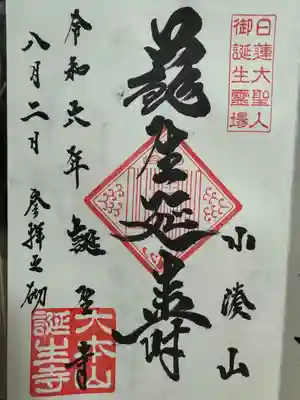 日蓮大聖人
御誕生霊場
小湊山
蘇生延壽
令和六年 誕生寺
八月二日 参拝之砌
大本山
誕生寺